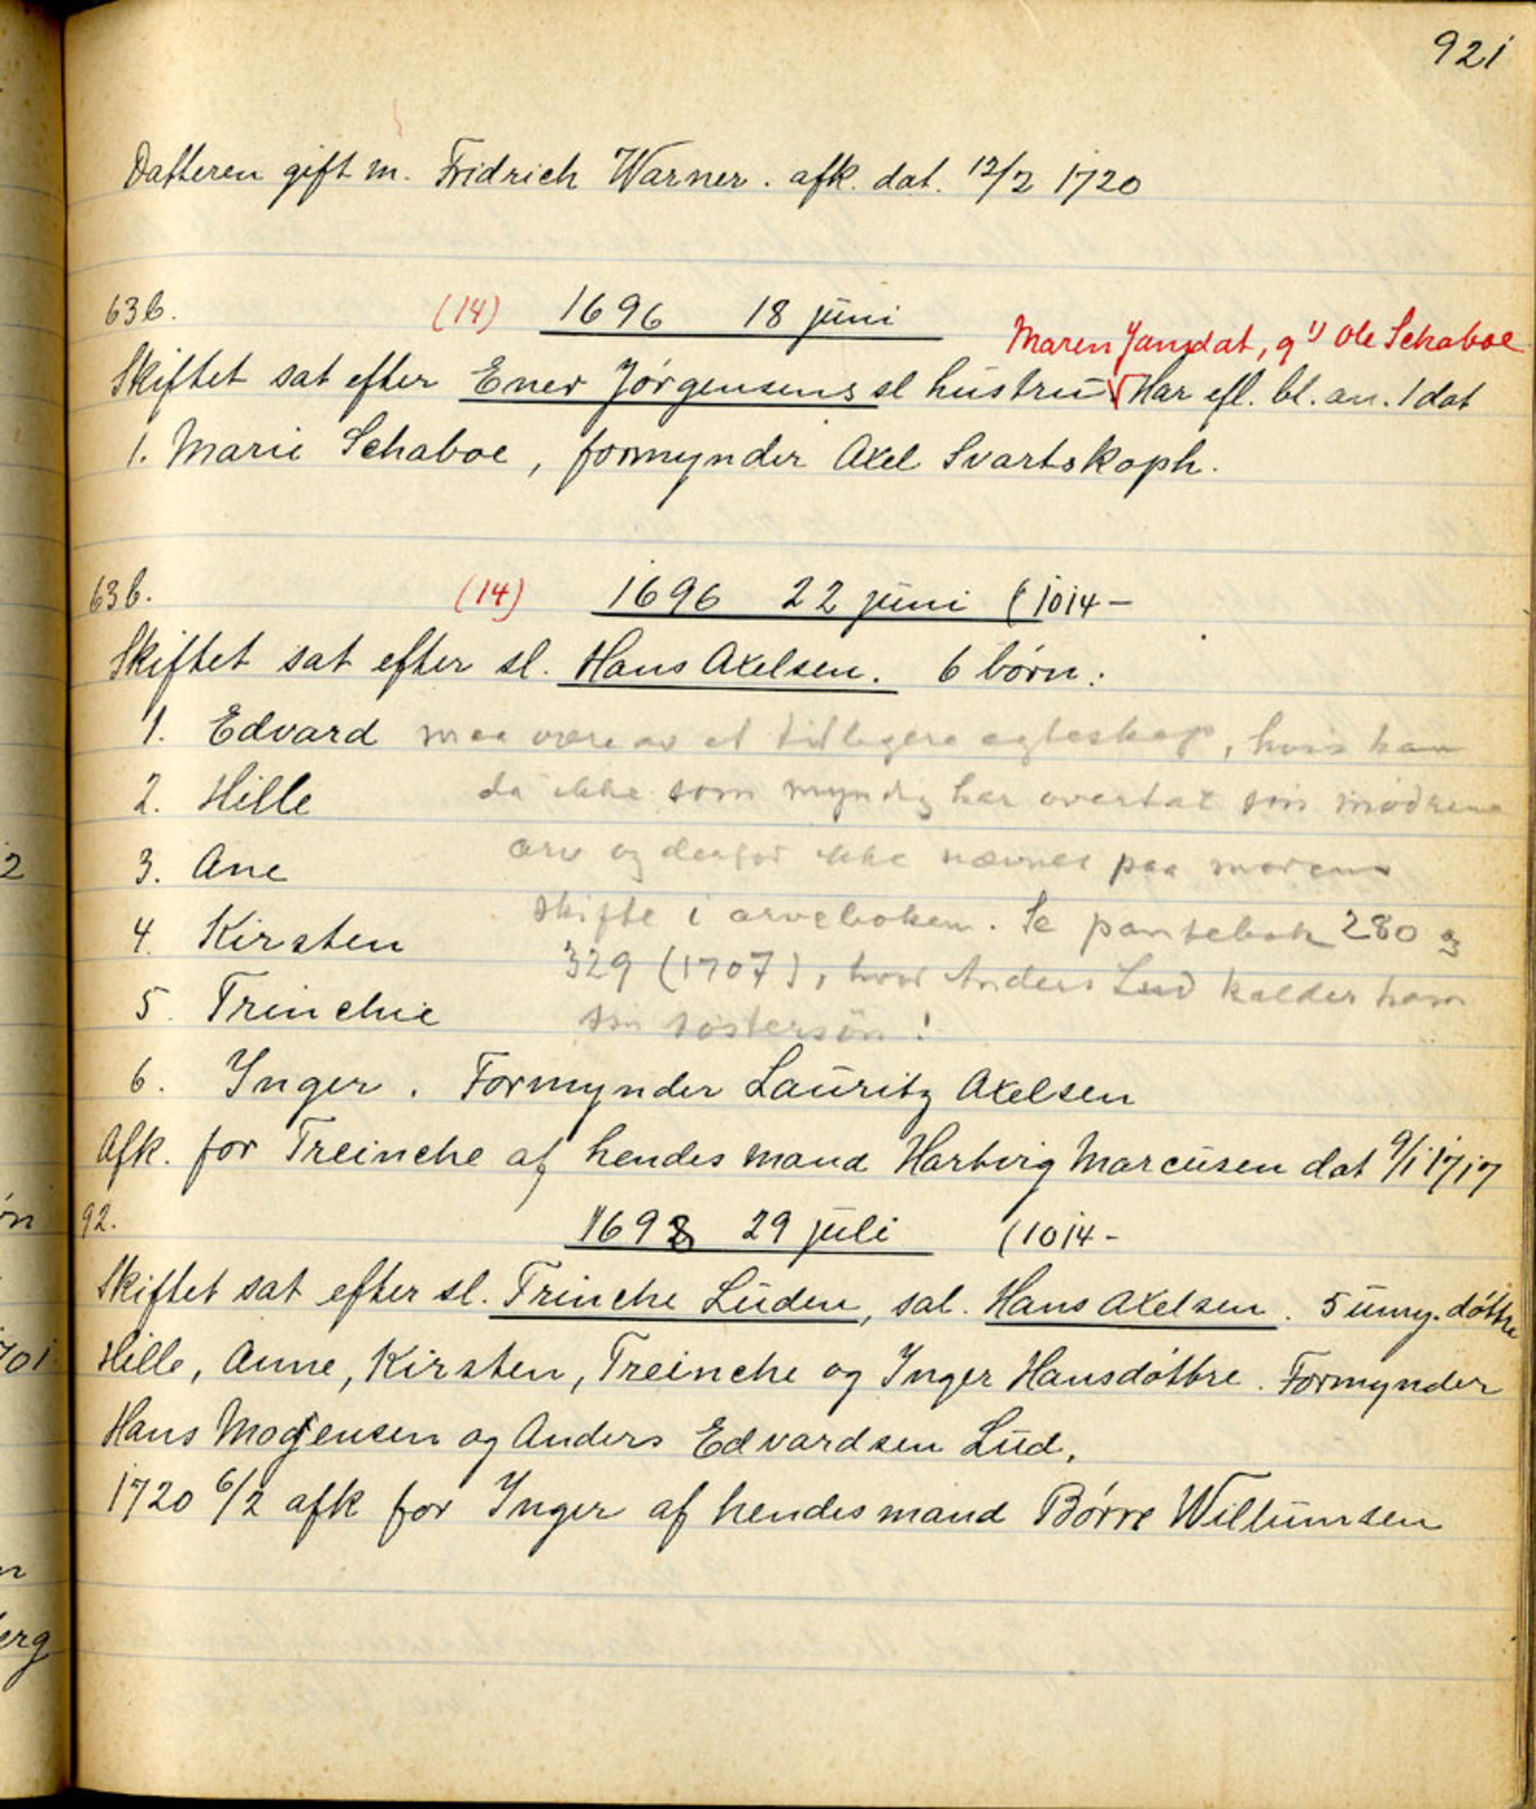 921
Datteren gift m. Fridrich Warner. afk. dat. 12/2 1720
63b. (14) 1696 18 juni
Maren Jansdat, g¹⁾ Ole Schaboe
Skiftet sat efter Ener Jørgensens sl hustru. Har efl. bl. an. 1 dat
1. Marie Schaboe, formynder Axel Svartskoph.
63b. (14) 1696 22 juni (1014-
Skiftet sat efter sl. Hans Axelsen. 6 børn:
1. Edvard maa være av et tidligere egteskap, hvis han
2. Hille da ikke som myndig har overtat sin mødrene
3. Ane arv og derfor ikke nævnes paa morens
4. Kirsten skifte i arveboken. Se pantebok 280 og
329 (1707), hvor Anders Lud kalder ham
5. Trinchie sin søstersøn!
6. Inger. Formynder Lauritz Axelsen
Afk. for Treinche af hendes mand Hartvig Marcusen dat 9/1 1717
92. 1698 29 juli (1014-
Skiftet sat efter sl. Trinche Luden, sal. Hans Axelsen. 5 umy. døttre
Hille, Anne, Kirsten, Treinche og Inger Hansdøttre. Formynder
Hans Mogensen og Anders Edvardsen Lud.
1720 6/2 afk for Inger af hendes mand Børre Willumsen
2
øn
701
n
erg